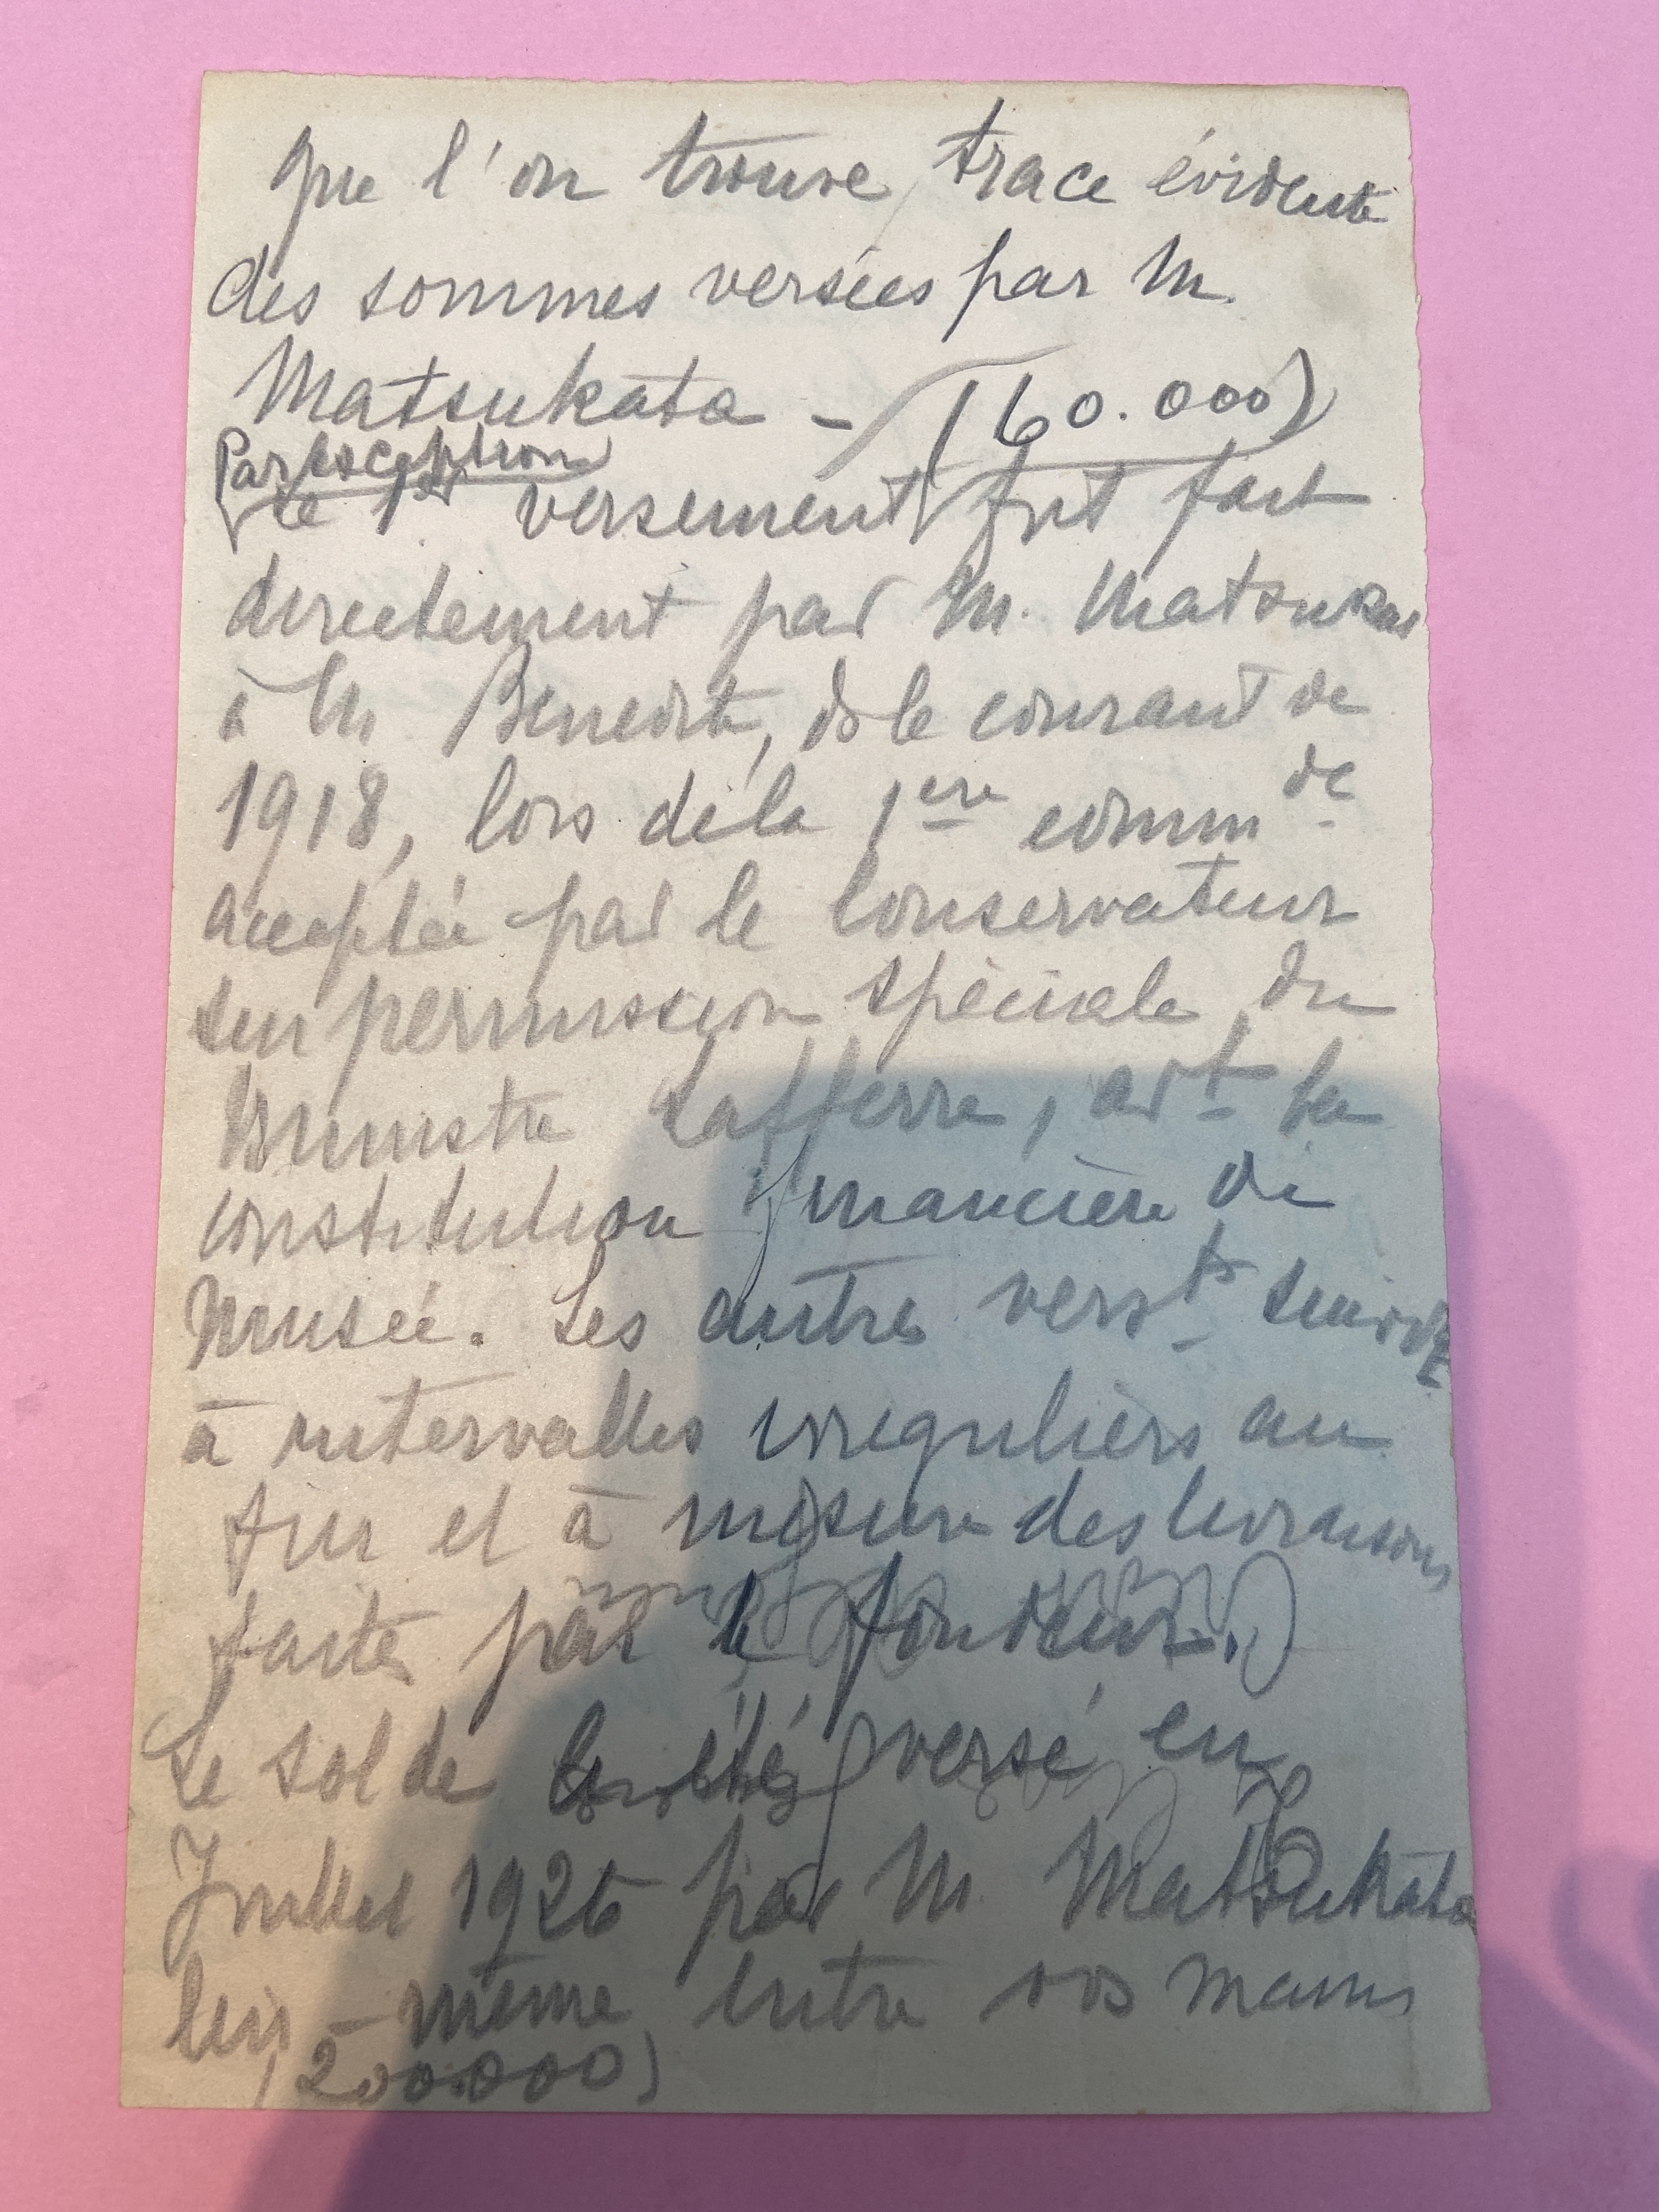 que l'on trouve trace évidente
des sommes versées par M.
Matsukata - (60.000)
Par exception
le 1er versement fut fait
directement par M. Matsukat
à M Benedite, ds le courant de
1918, lors de la 1ere commde
acceptée par le Conservateur
sur permission spéciale du
Ministre Lafferre, avt la
constitution financière du
Musée. Les autres verst suivirt
à intervalles irreguliers au
fur et à mesure des livraisons
faites par le fondeur.
Le solde versé en
Juillet 1926 par M. Matsukata
lui-même entre vos mains
(200.000)